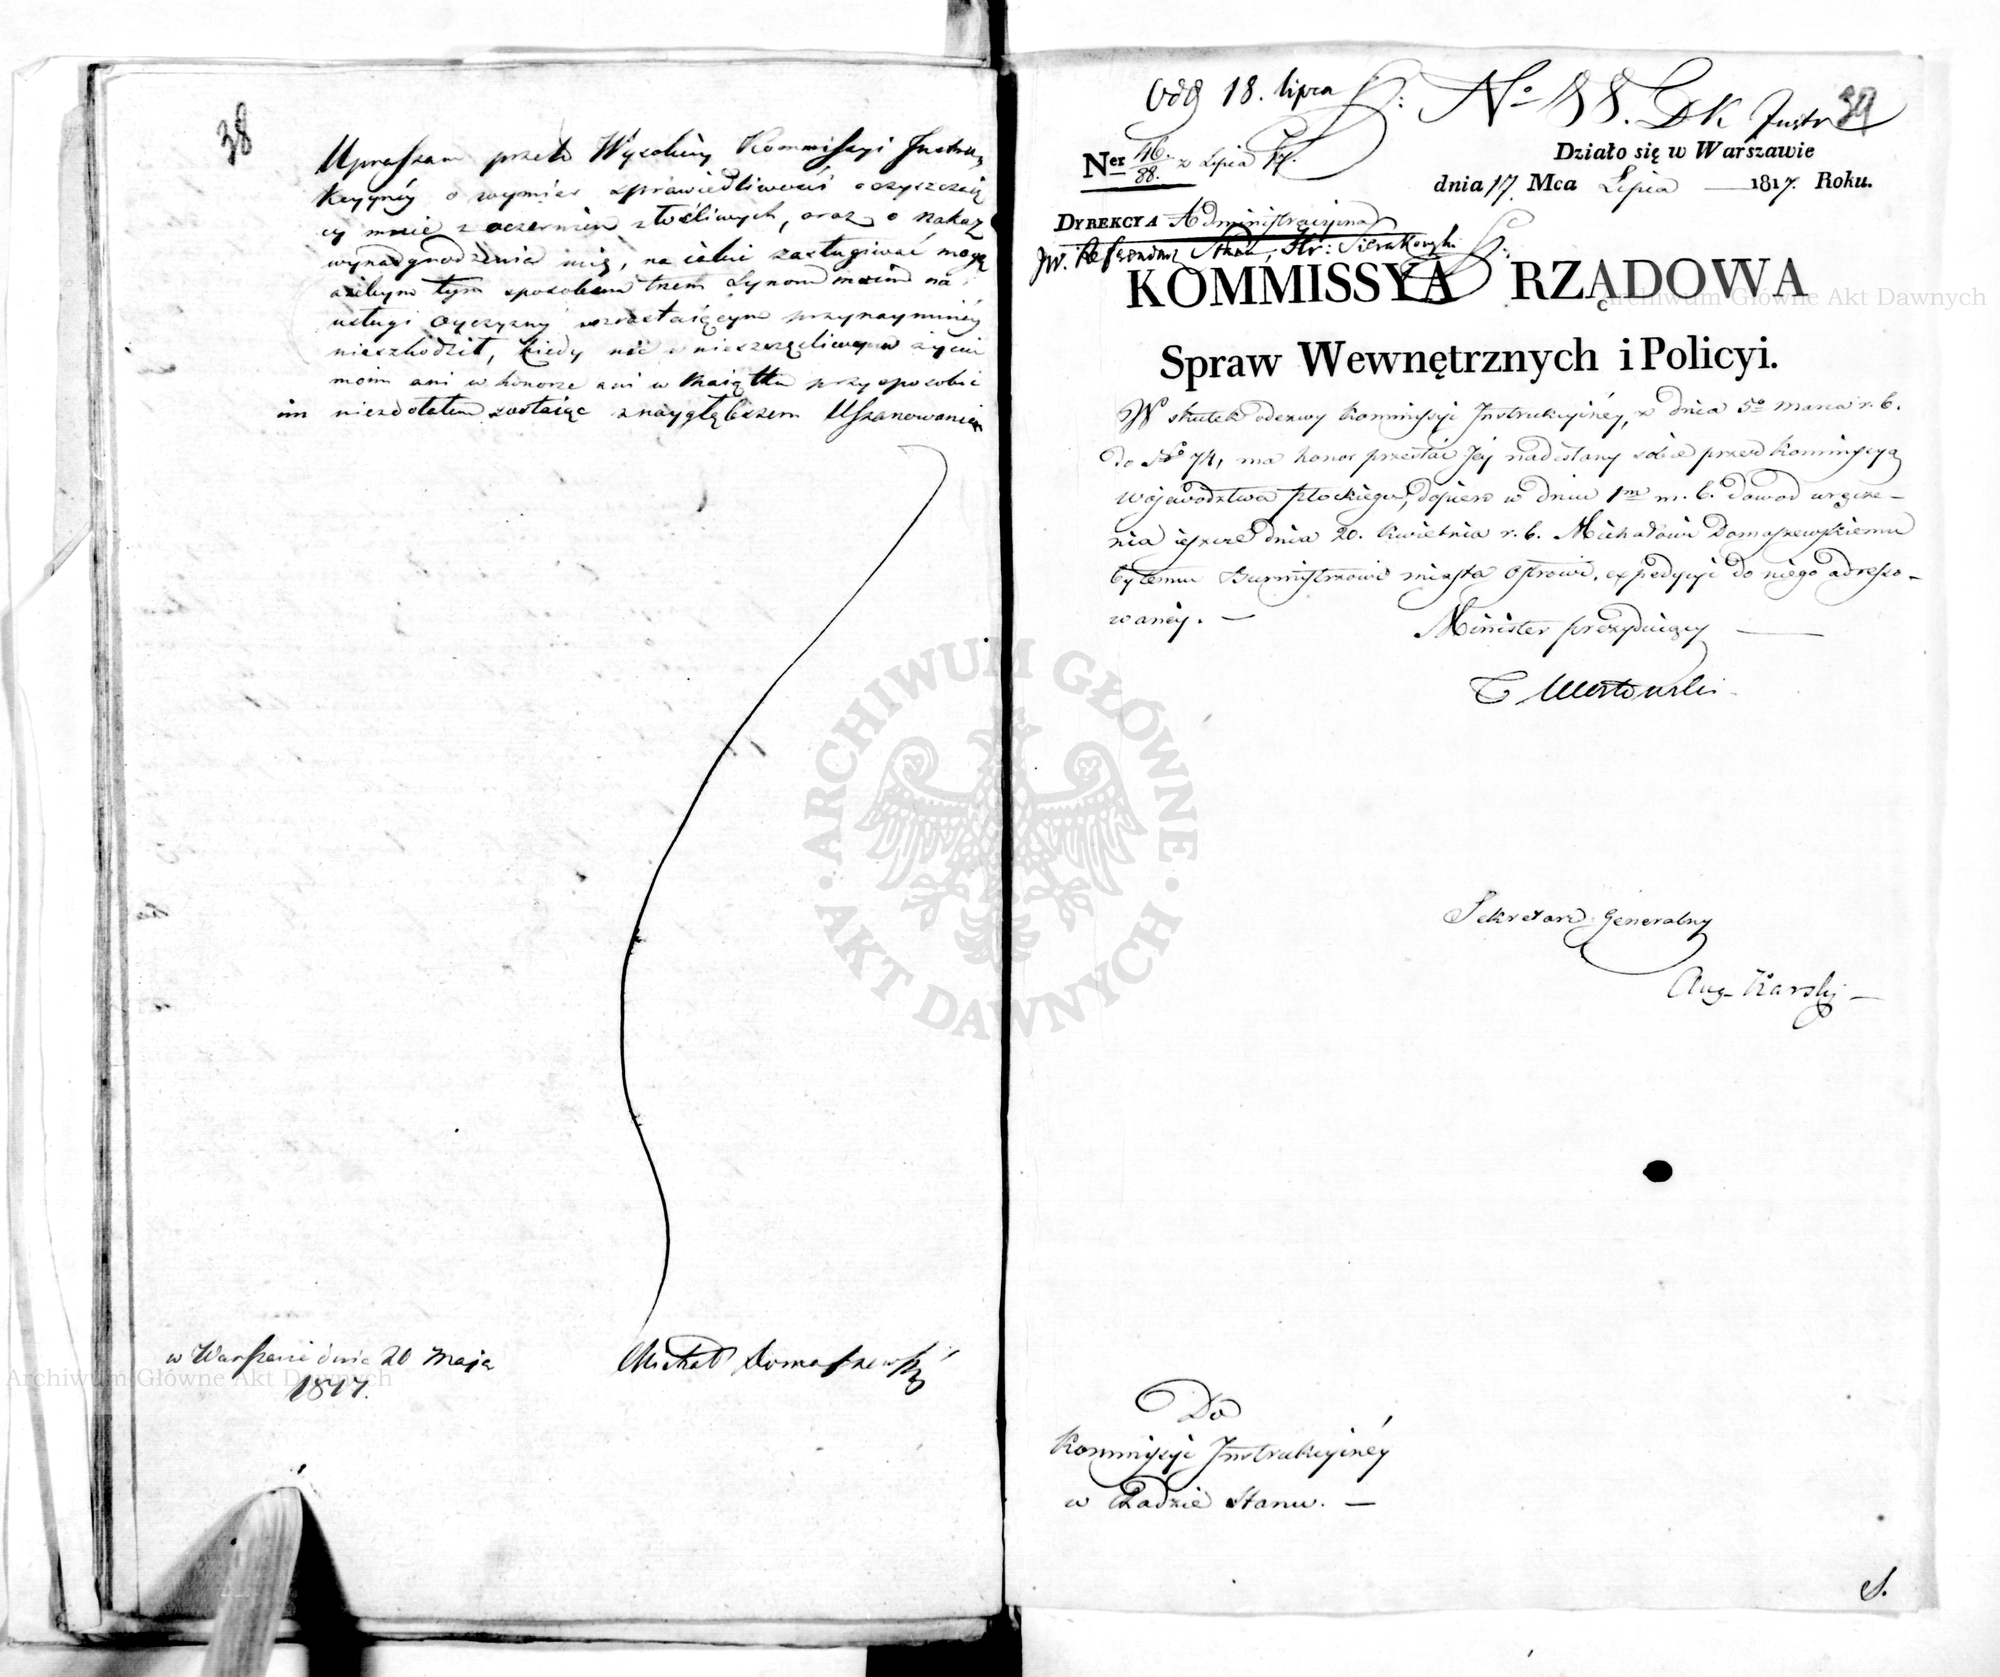 38
Upraszam przeto Wysokiéy Kommissyi Instru
kcyynéy o wymiar sprawiedliwości oczyszczaią
cy mnie z oczernień złośliwych, oraz o nakaz
wynadgrodzenia mię, na iakie zasługiwać mogę
ażebym tym sposobem trzem Synom moim na
usługi Oyczyzny wzrastaiącym przynaymniéy
nieszkodził, kiedy nic w nieszczęśliwym życiu
moim ani w honorze ani w Maiątku przysposobić
im niezdołałem zostaiąc z naygłębszem Uszanowaniem
w Warszawie dnia 20 Maja
1817.
Michał Domaszewski
Odd 18. lipca
No 88. DK Instr
39
Ner 46/88. z Lipca 17.
Działo się w Warszawie
dnia 17. Mca Lipca 1817. Roku.
DYREKCYA Administracyjna
JW. Referendarz Stanu, Hr: Sierakowski
KOMMISSYA RZĄDOWA
Spraw Wewnętrznych i Policyi.
W skutek odezwy Kommissyi Instrukcyinéy, z dnia 5o marca r. b.
do No 74, ma honor przesłać Jej nadesłany sobie przez Kommissyą
Województwa Płockiego, dopiero w dniu 1m m. b. dowod wręcze-
nia ieszcze dnia 20. Kwietnia r. b. Michałowi Domaszewskiemu
byłemu Burmistrzowi miasta Ostrowi, expedycyi do niego adresso-
waney. —
Minister prezyduiący
T Mostowski
Sekretarz Generalny
Aug. Karski
Do
Kommissyi Instrukcyinéy
w Radzie Stanu. —
S.
ARCHIWUM GŁÓWNE AKT DAWNYCH
Archiwum Główne Akt Dawnych
Archiwum Główne Akt Dawnych